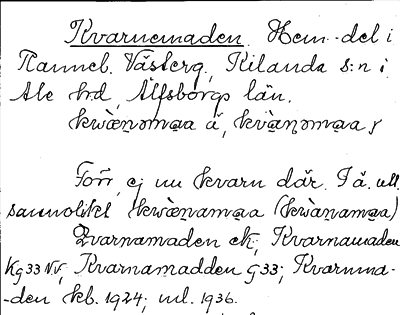 Kvarnemaden. Hem.-del i
Ranneb. Västerg., Kilanda s:n i
Ale hrd, Älfsborgs län.
kwæ̀ṇəma̱a ä, kvæ̀ṇəma̱a ɟ
Förr, ej nu kvarn där. I ä. utt.
sannolikt kwæ̀ṇama̱a (kwàṇama̱a)
Qvarnamaden ek; Kvarnamaden
Kg 33 NV; Kvarnamadden G33; Kvarnma-
-den kb. 1924; ml. 1936.